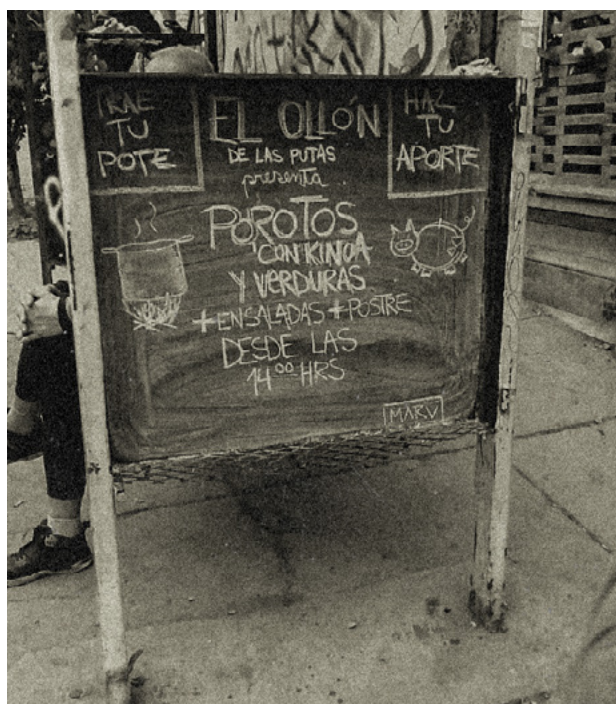 TRAE
TU
POTE
EL OLLÓN
DE LAS PUTAS
presenta
HAZ
TU
APORTE
POROTOS
CON KINOA
Y VERDURAS
+ ENSALADAS + POSTRE
DESDE LAS
14⁰⁰ HRS